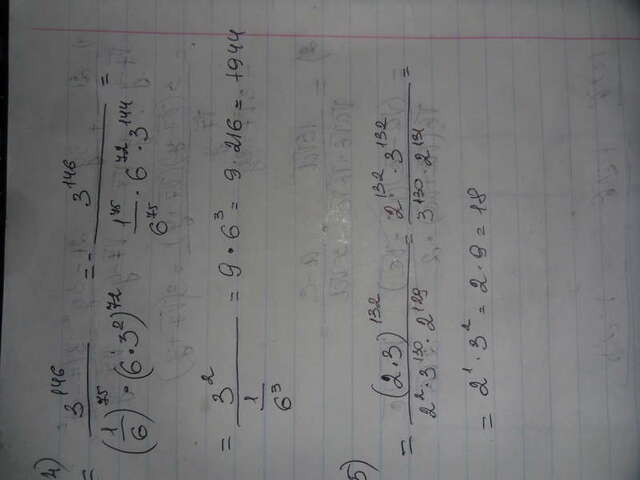 4)
= 3^146 / ((1/6)^75 · (6·3^2)^72) = - 3^146 / (1^75/6^75 · 6^72 · 3^144) =
= 3^2 / (1/6^3) = 9 · 6^3 = 9 · 216 = 1944
5)
= (2·3)^132 / (2^2 · 3^130 · 2^129) = 2^132 · 3^132 / (3^130 · 2^131) =
= 2^1 · 3^2 = 2 · 9 = 18